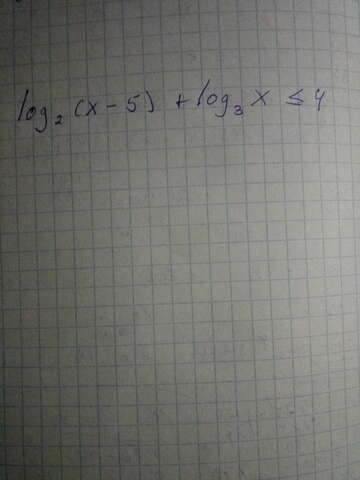 log₂ (x - 5) + log₃ x ≤ 4